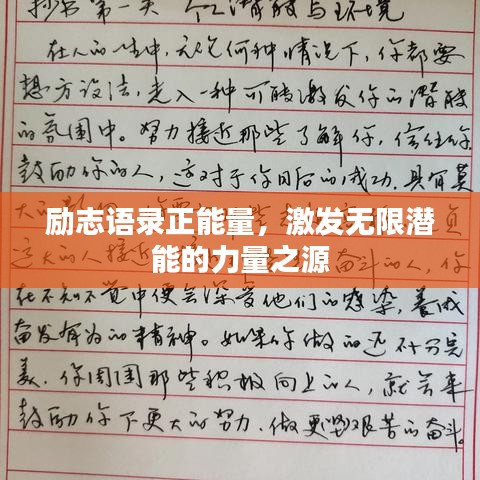 抄书第一天 个人潜能与环境
在人的一生中,无论何种情况下,你都要
想方设法,走入一种可能激发你的潜能
的氛围中。努力接近那些了解你,信任你,
鼓励你的人,这对于你日后的成功,具有莫
大的
励志语录正能量，激发无限潜
能的力量之源
奋斗的人,你
在不知不觉中便会深受他们的感染,养成
奋发有为的精神。如果你做的还不十分完
美,你周围那些积极向上的人,就会来
鼓励你下更大的努力,做更坚艰苦的奋斗。